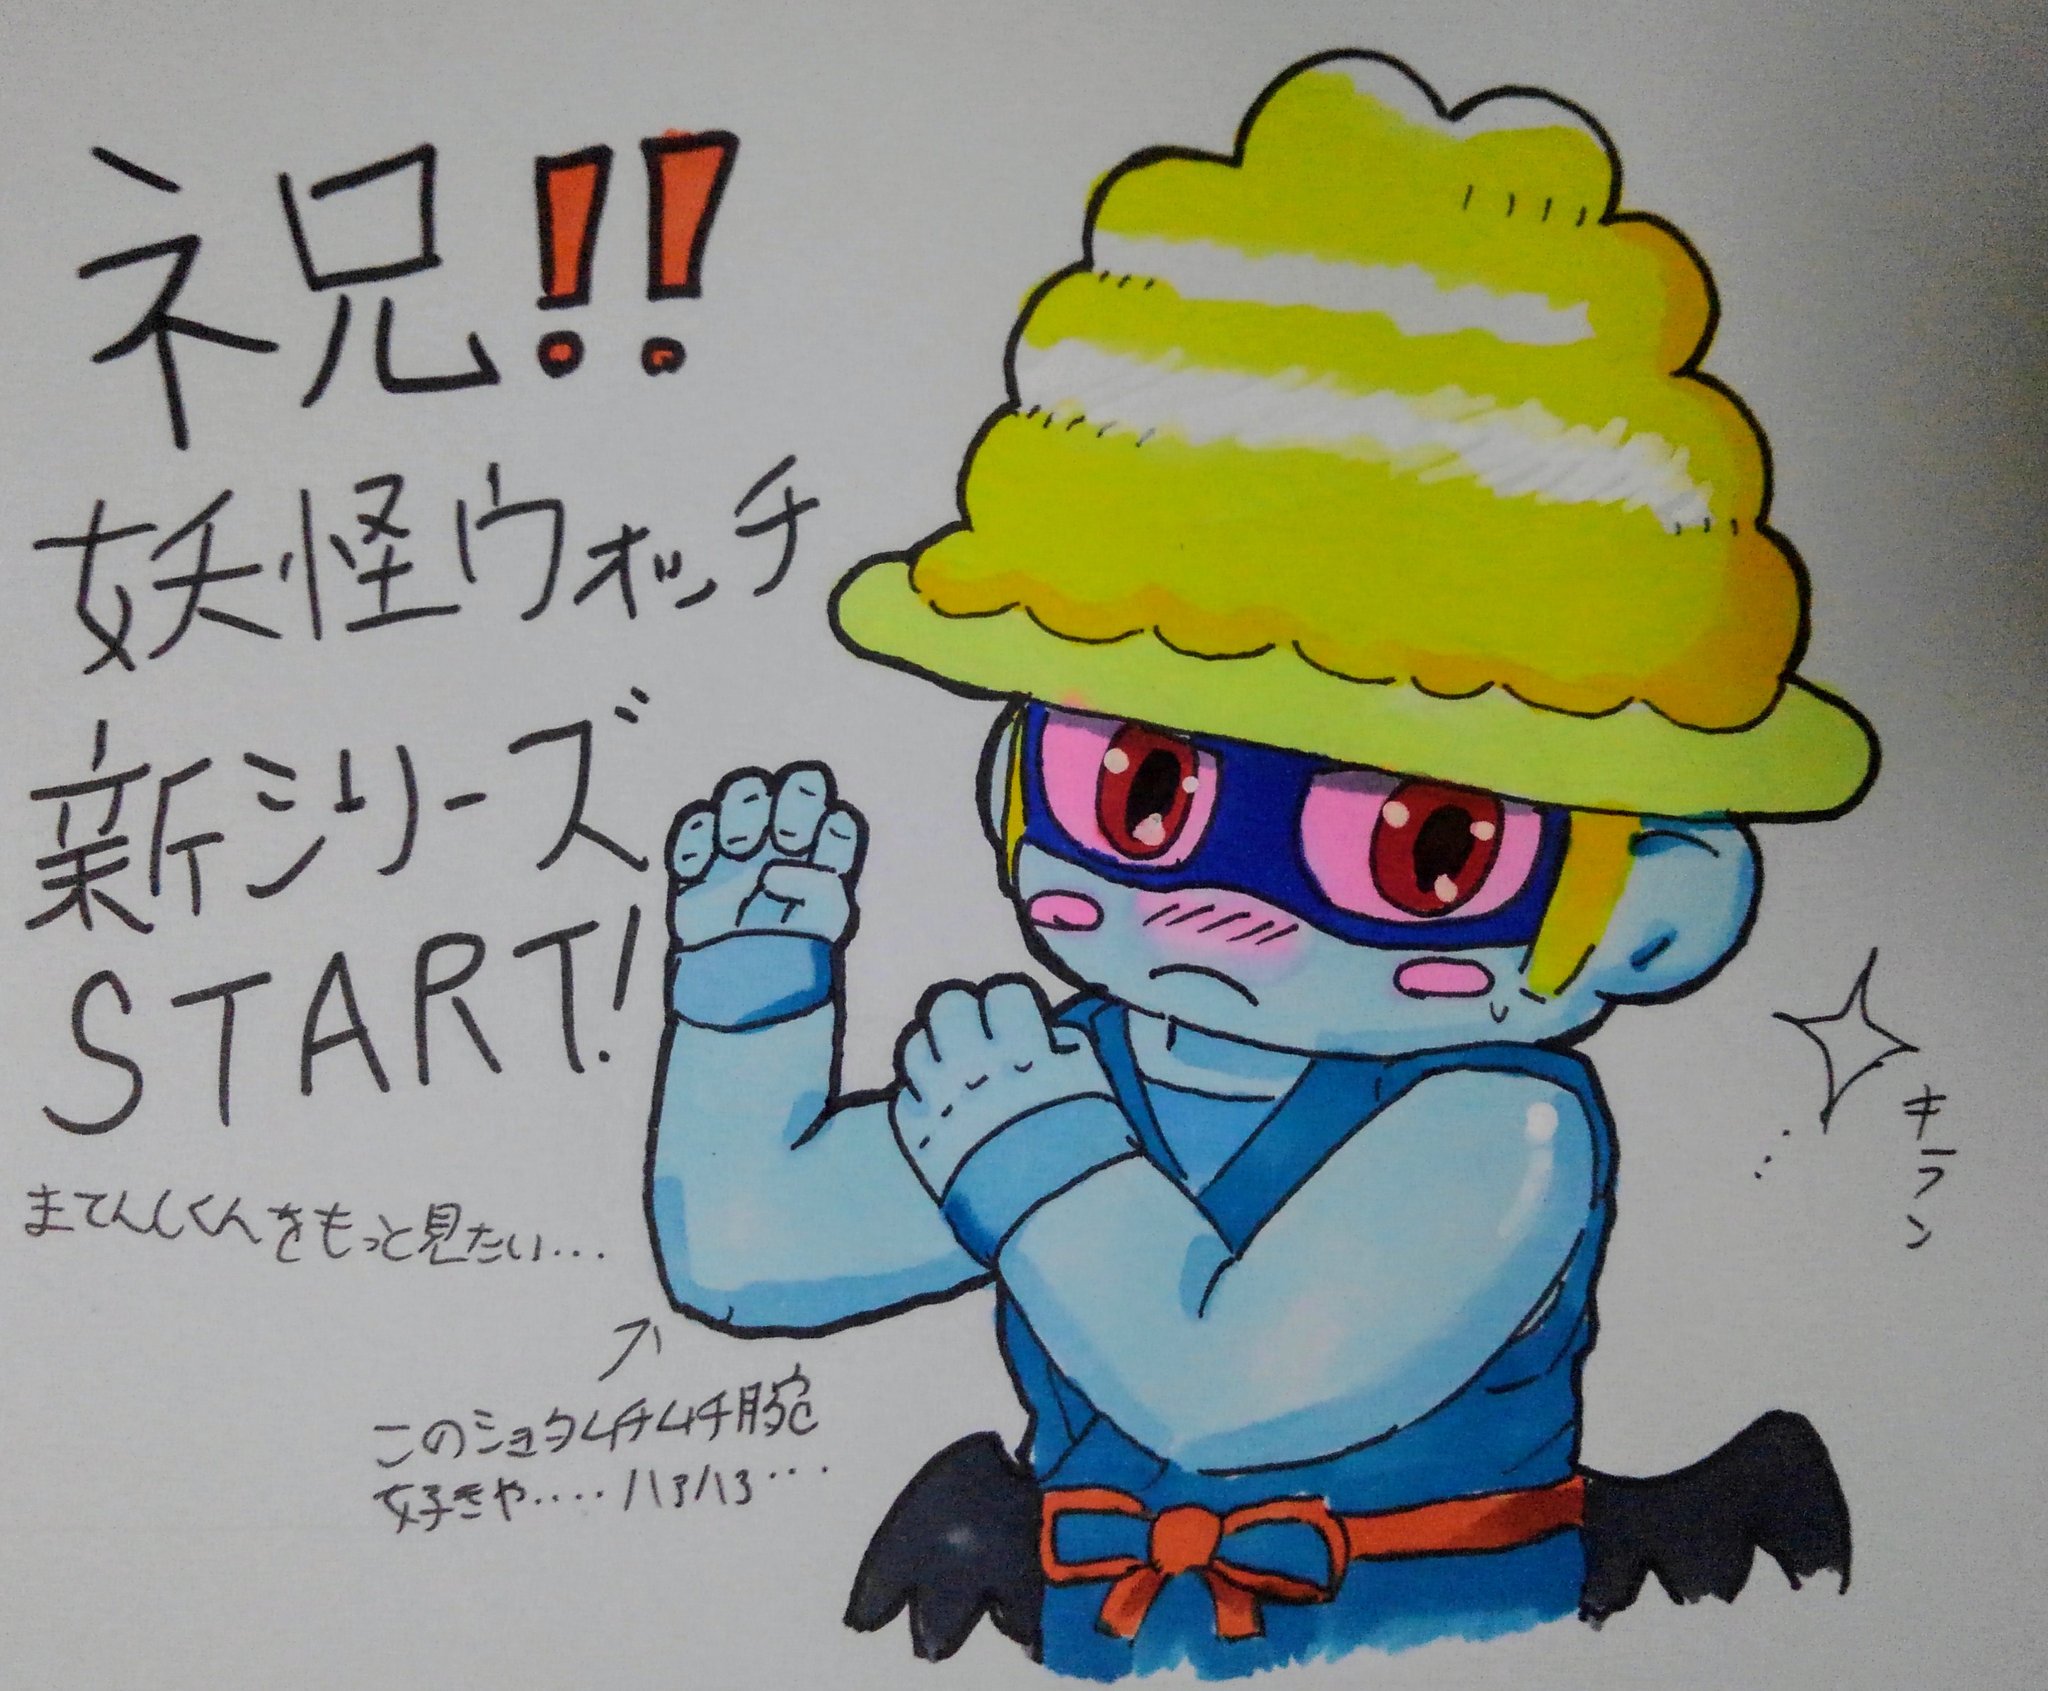 祝!!
妖怪ウォッチ
新シリーズ
START!
まてんしくんをもっと見たい...
このショタムチムチ腕
好きや....ハァハァ...
キラン